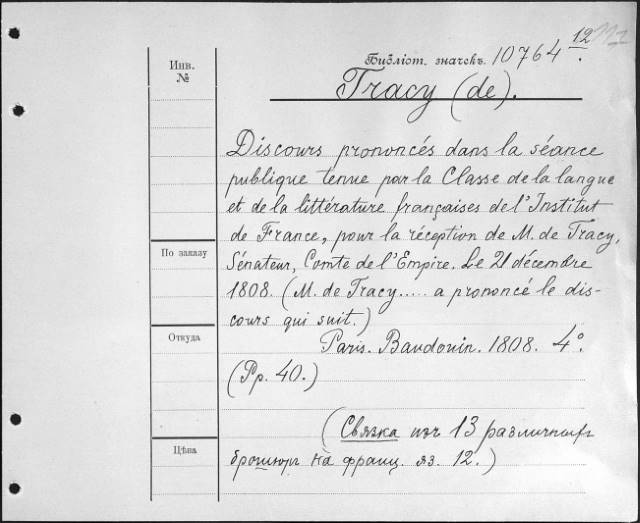 Инв.
№
Библіот. значекъ. 10764 12.
Tracy (de).
Discours prononcés dans la séance
publique tenue par la Classe de la langue
et de la littérature françaises de l'Institut
de France, pour la réception de M. de Tracy,
Sénateur, Comte de l'Empire. Le 21 décembre
1808. (M. de Tracy..... a prononcé le dis-
cours qui suit.)
Paris. Baudouin. 1808. 4°.
(Pp. 40.)
(Связка изъ 13 различныхъ
брошюръ на франц. яз. 12.)
По заказу
Откуда
Цѣна